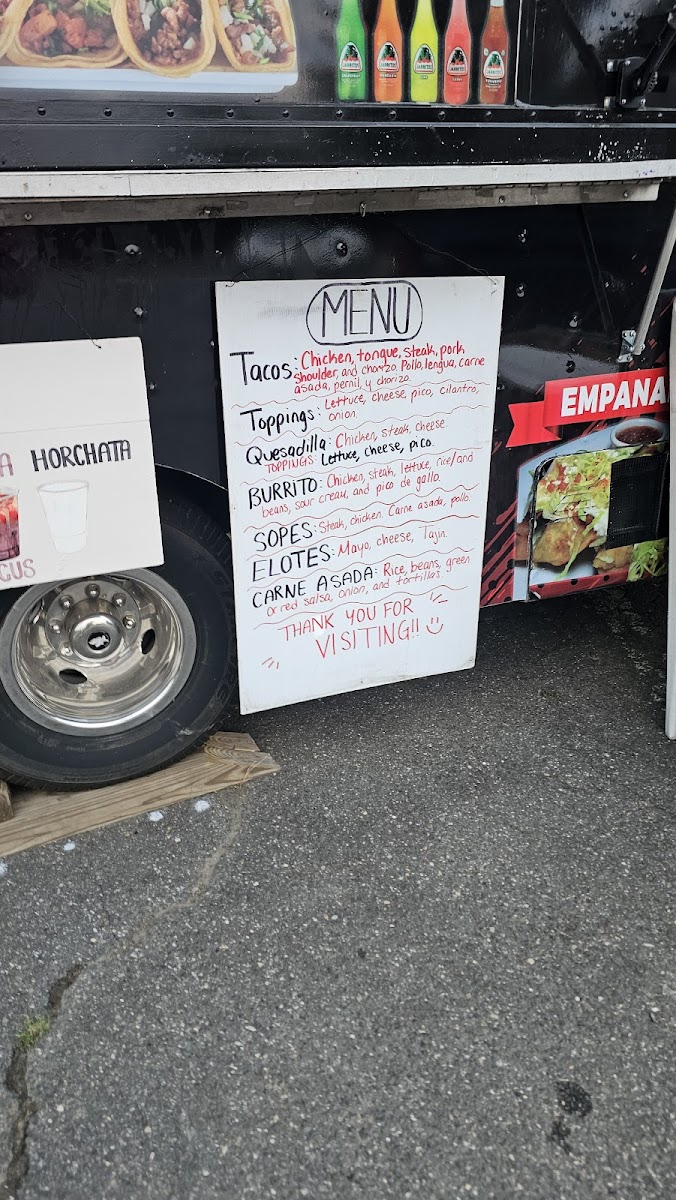 MENU
Tacos: Chicken, tongue, steak, pork
shoulder, and chorizo. Pollo, lengua, carne
asada, pernil, y chorizo.
Toppings: Lettuce, cheese, pico, cilantro,
onion.
Quesadilla: Chicken, steak, cheese.
TOPPINGS: Lettuce, cheese, pico.
BURRITO: Chicken, steak, lettuce, rice/and
beans, sour cream, and pico de gallo.
SOPES: Steak, chicken. Carne asada, pollo.
ELOTES: Mayo, cheese, Tajin.
CARNE ASADA: Rice, beans, green
or red salsa, onion, and tortillas.
THANK YOU FOR
VISITING!!
A HORCHATA
CUS
EMPANA